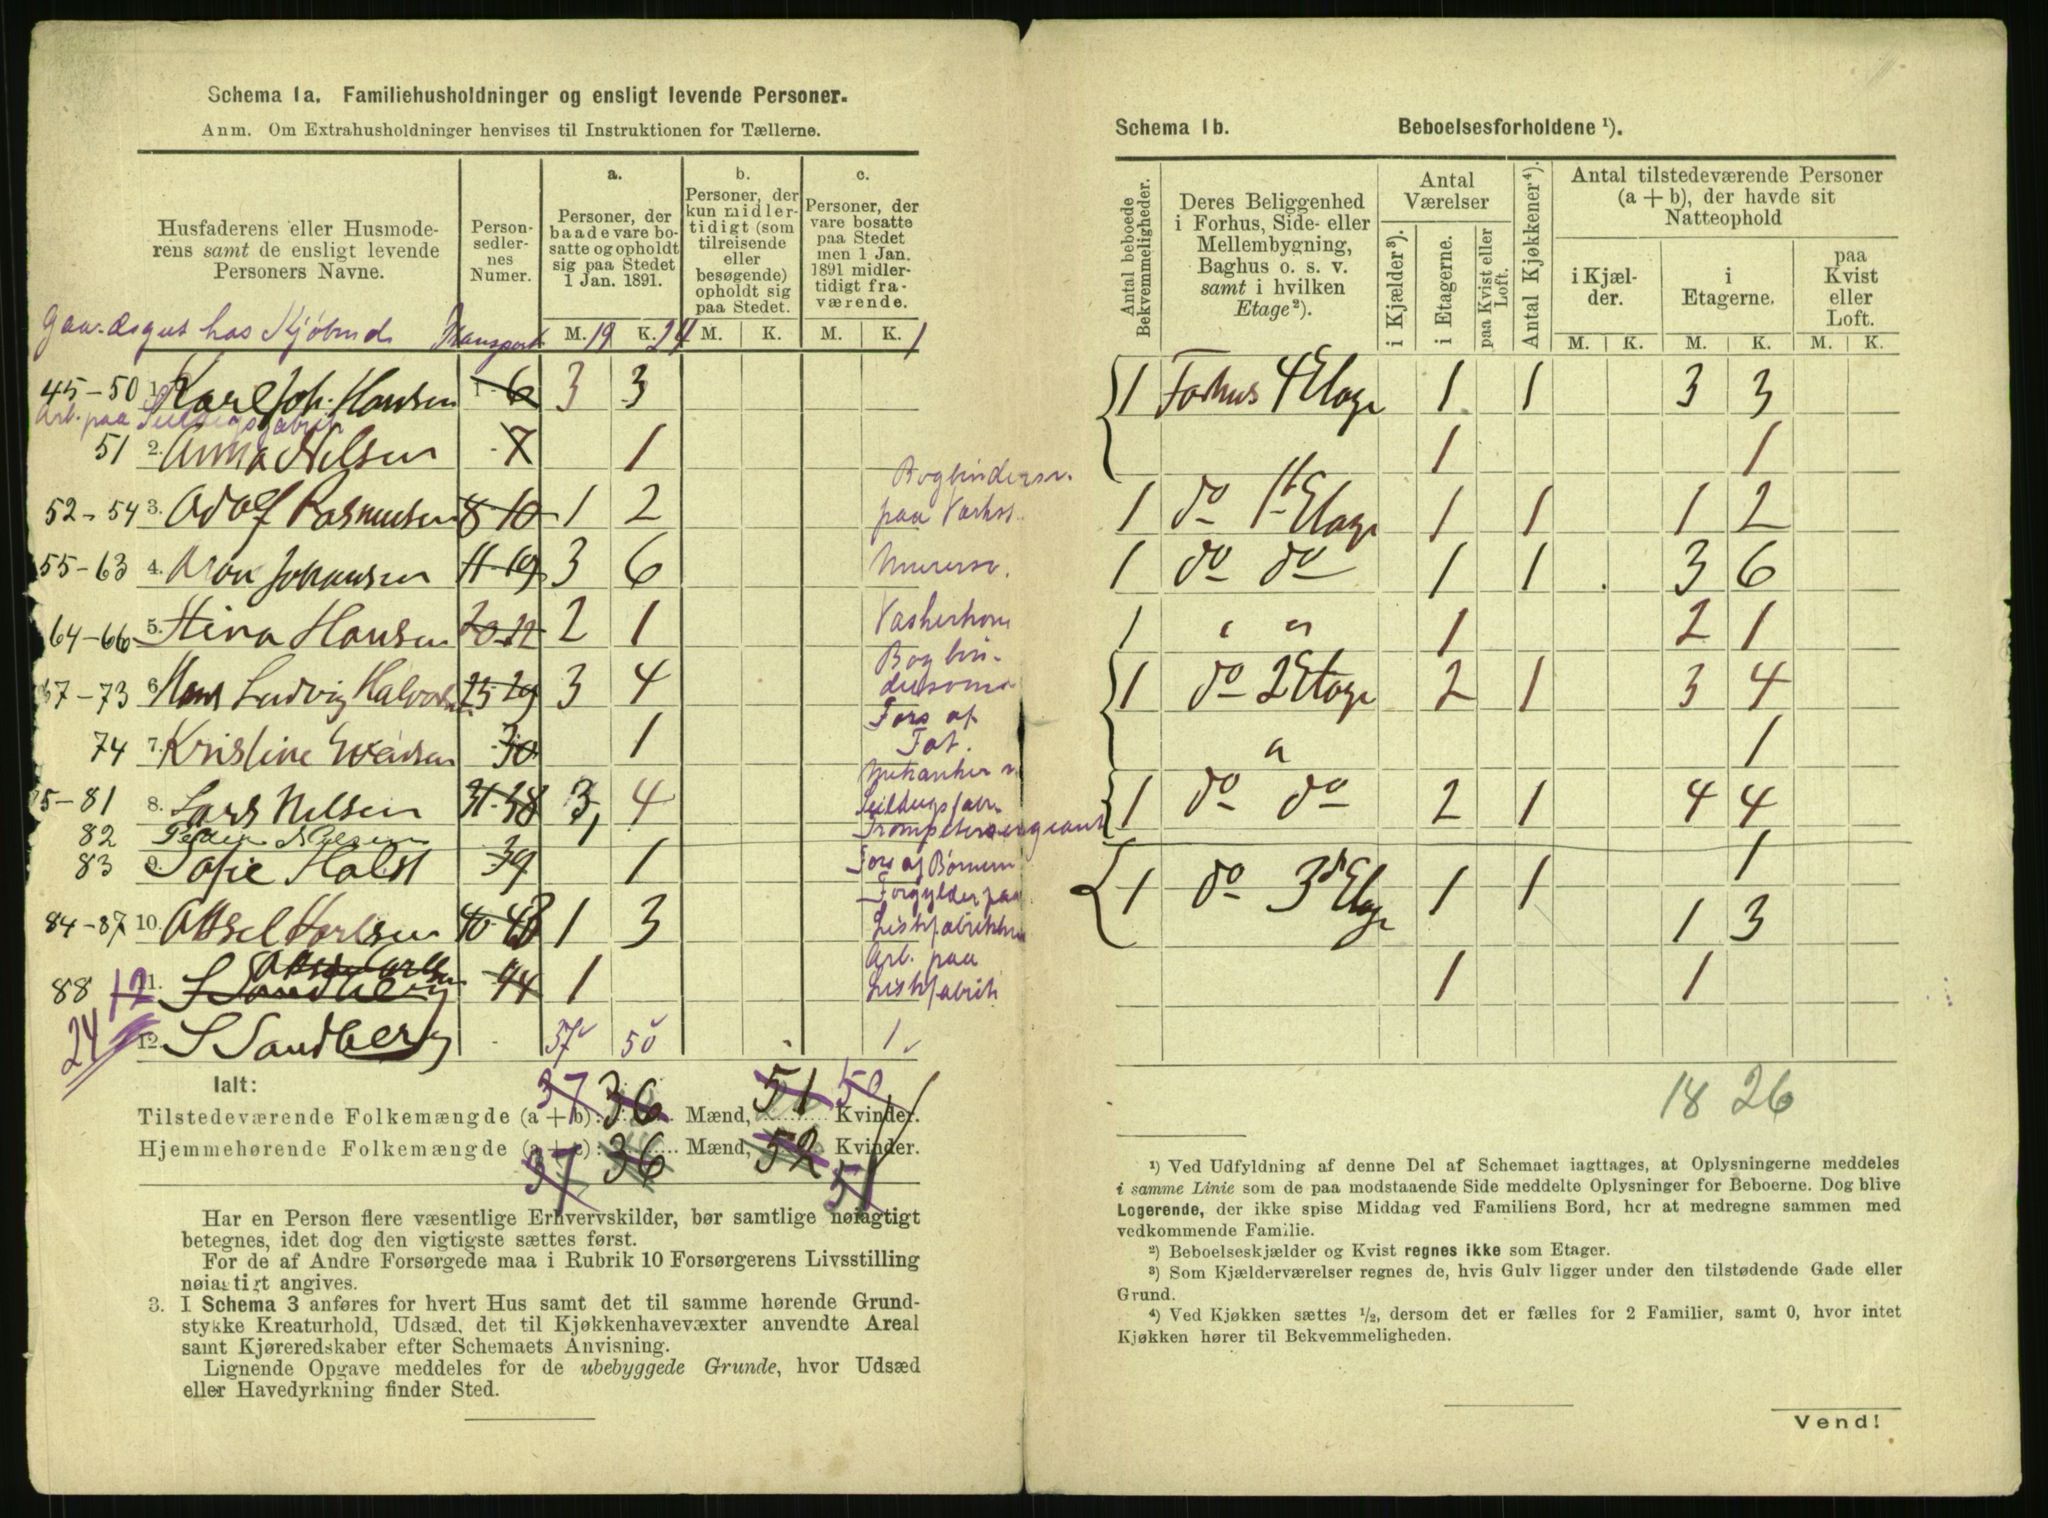 Schema 1a. Familiehusholdninger og ensligt levende Personer.
Anm. Om Extrahusholdninger henvises til Instruktionen for Tællerne.
Husfaderens eller Husmoderens samt de ensligt levende Personers Navne.
Personsedlernes Numer.
a.
Personer, der baade vare bosatte og opholdt sig paa Stedet 1 Jan. 1891.
b.
Personer, der kun midlertidigt (som tilreisende eller besøgende) opholdt sig paa Stedet.
c.
Personer, der vare bosatte paa Stedet men 1 Jan. 1891 midlertidigt fraværende.
Transport M. 19 K. 24 M. K. M. K. 1
45-50 1. Karl Joh. Hansen 1-6 3 3
Arb. paa Seildugsfabrik
51 2. Anna Nilsen 7 1
52-54 3. Adolf Rasmusen 8-10 1 2 Bogbindersv. paa Værkst.
55-63 4. Aron Johansen 11-19 3 6 Murersv.
64-66 5. Stina Hansen 20-22 2 1
67-73 6. Hans Ludvig Halvorsen 23-29 3 4
74 7. Kristine 30 1 Fors af Fat.
75-81 8. Lars Nilsen 31-38 3, 4 Seildugsfabr.
82 Peder Nilsen Trompetersergeant
83 9. Sofie Holst 39 1 Fors af Børnene
84-87 10. Aksel Karlsen 40-43 1 3 Forgylder paa Listefabrikken
88 12 11. S Sandberg 44 1 Arb. paa Listefabrik
24 12. S Sandberg 37 50 1
Ialt:
Tilstedeværende Folkemængde (a + b): 37 36 Mænd, 51 50 Kvinder.
Hjemmehørende Folkemængde (a + c): 37 36 Mænd, 52 51 Kvinder.
Har en Person flere væsentlige Erhvervskilder, bør samtlige nøiagtigt
betegnes, idet dog den vigtigste sættes først.
For de af Andre Forsørgede maa i Rubrik 10 Forsørgerens Livsstilling
nøiagtigt angives.
3. I Schema 3 anføres for hvert Hus samt det til samme hørende Grund-
stykke Kreaturhold, Udsæd, det til Kjøkkenhavevæxter anvendte Areal
samt Kjøreredskaber efter Schemaets Anvisning.
Lignende Opgave meddeles for de ubebyggede Grunde, hvor Udsæd
eller Havedyrkning finder Sted.
Schema 1b. Beboelsesforholdene ¹).
Antal beboede Bekvemmeligheder.
Deres Beliggenhed i Forhus, Side- eller Mellembygning, Baghus o. s. v. samt i hvilken Etage²).
Antal Værelser
i Kjælder³).
i Etagerne.
paa Kvist eller Loft.
Antal Kjøkkener⁴).
Antal tilstedeværende Personer (a + b), der havde sit Natteophold
i Kjælder.
i Etagerne.
paa Kvist eller Loft.
M. K. M. K. M. K.
1 Forhus 4 Etage 1 1 3 3
1 1
1 do 1st Etage 1 1 1 2
1 do do 1 1 3 6
1 " " 1 2 1
1 do 2 Etage 2 1 3 4
" 1
1 do do 2 1 4 4
1
1 do 3d Etage 1 1 1 3
1 1
18 26
¹) Ved Udfyldning af denne Del af Schemaet iagttages, at Oplysningerne meddeles
i samme Linie som de paa modstaaende Side meddelte Oplysninger for Beboerne. Dog blive
Logerende, der ikke spise Middag ved Familiens Bord, her at medregne sammen med
vedkommende Familie.
²) Beboelseskjælder og Kvist regnes ikke som Etager.
³) Som Kjælderværelser regnes de, hvis Gulv ligger under den tilstødende Gade eller
Grund.
⁴) Ved Kjøkken sættes ½, dersom det er fælles for 2 Familier, samt 0, hvor intet
Kjøkken hører til Bekvemmeligheden.
Vend!